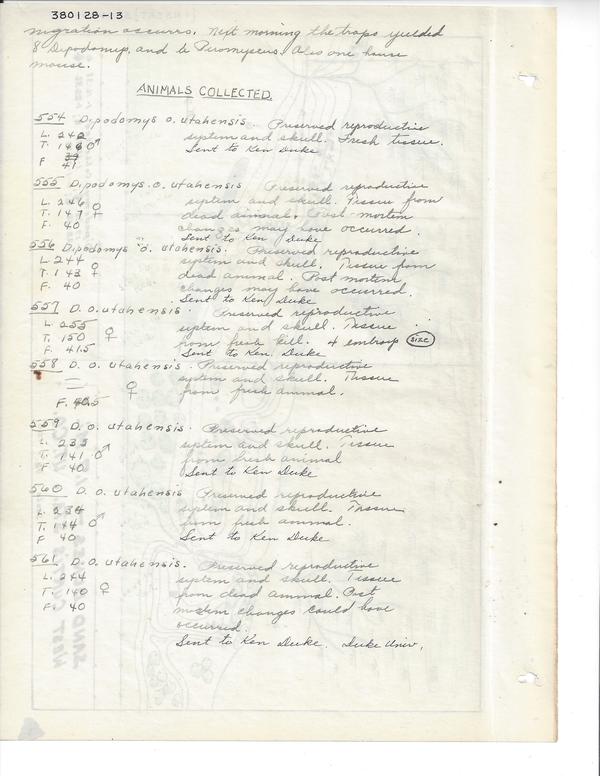 380128-13
migration occurrs. Next morning the traps yielded
8 Dipodomys, and 6 Peromyscus. Also one house
mouse.
ANIMALS COLLECTED.
554 Dipodomys o. utahensis. Preserved reproductive
L. 242 system and skull. Fresh tissue.
T. 146 ♂ Sent to Ken Duke
F 39
41
555 Dipodomys. o. utahensis Preserved reproductive
L. 246 system and skull. Tissue from
T. 147 ♀ dead animal. Post-mortem
F. 40 changes may have occurred.
Sent to Ken Duke
556 Dipodomys o. utahensis. Preserved reproductive
L. 244 system and skull. Tissue from
T. 143 ♀ dead animal. Post mortem
F. 40 changes may have occurred.
Sent to Ken Duke
557 D. o. utahensis. Preserved reproductive
L. 255 system and skull. Tissue
T. 150 ♀ from fresh kill. 4 embroy size
F. 41.5 Sent to Ken. Duke
558 D. O. utahensis. Preserved reproductive
system and skull. Tissue
♀ from fresh animal.
F. 40.5
559 D. o. utahensis. Preserved reproductive
L. 235 system and skull. Tissue
T. 141 ♂ from fresh animal
F 40 Sent to Ken Duke
560 D. o. utahensis Preserved reproductive
L. 234 system and skull. Tissue
T. 144 ♂ from fresh animal.
F 40 Sent to Ken Duke
561 D. o. utahensis. Preserved reproductive
L. 244 system and skull. Tissue
T. 140 ♀ from dead animal. Post
F. 40 mortem changes could have
occurred.
Sent to Ken Duke. Duke Univ.